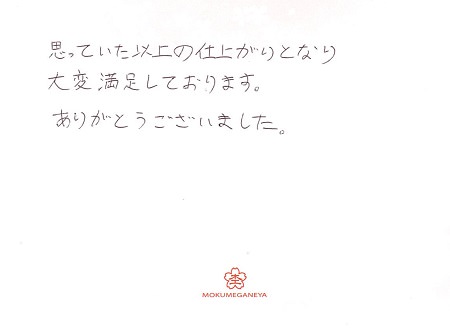 思っていた以上の仕上がりとなり
大変満足しております。
ありがとうございました。
MOKUMEGANEYA